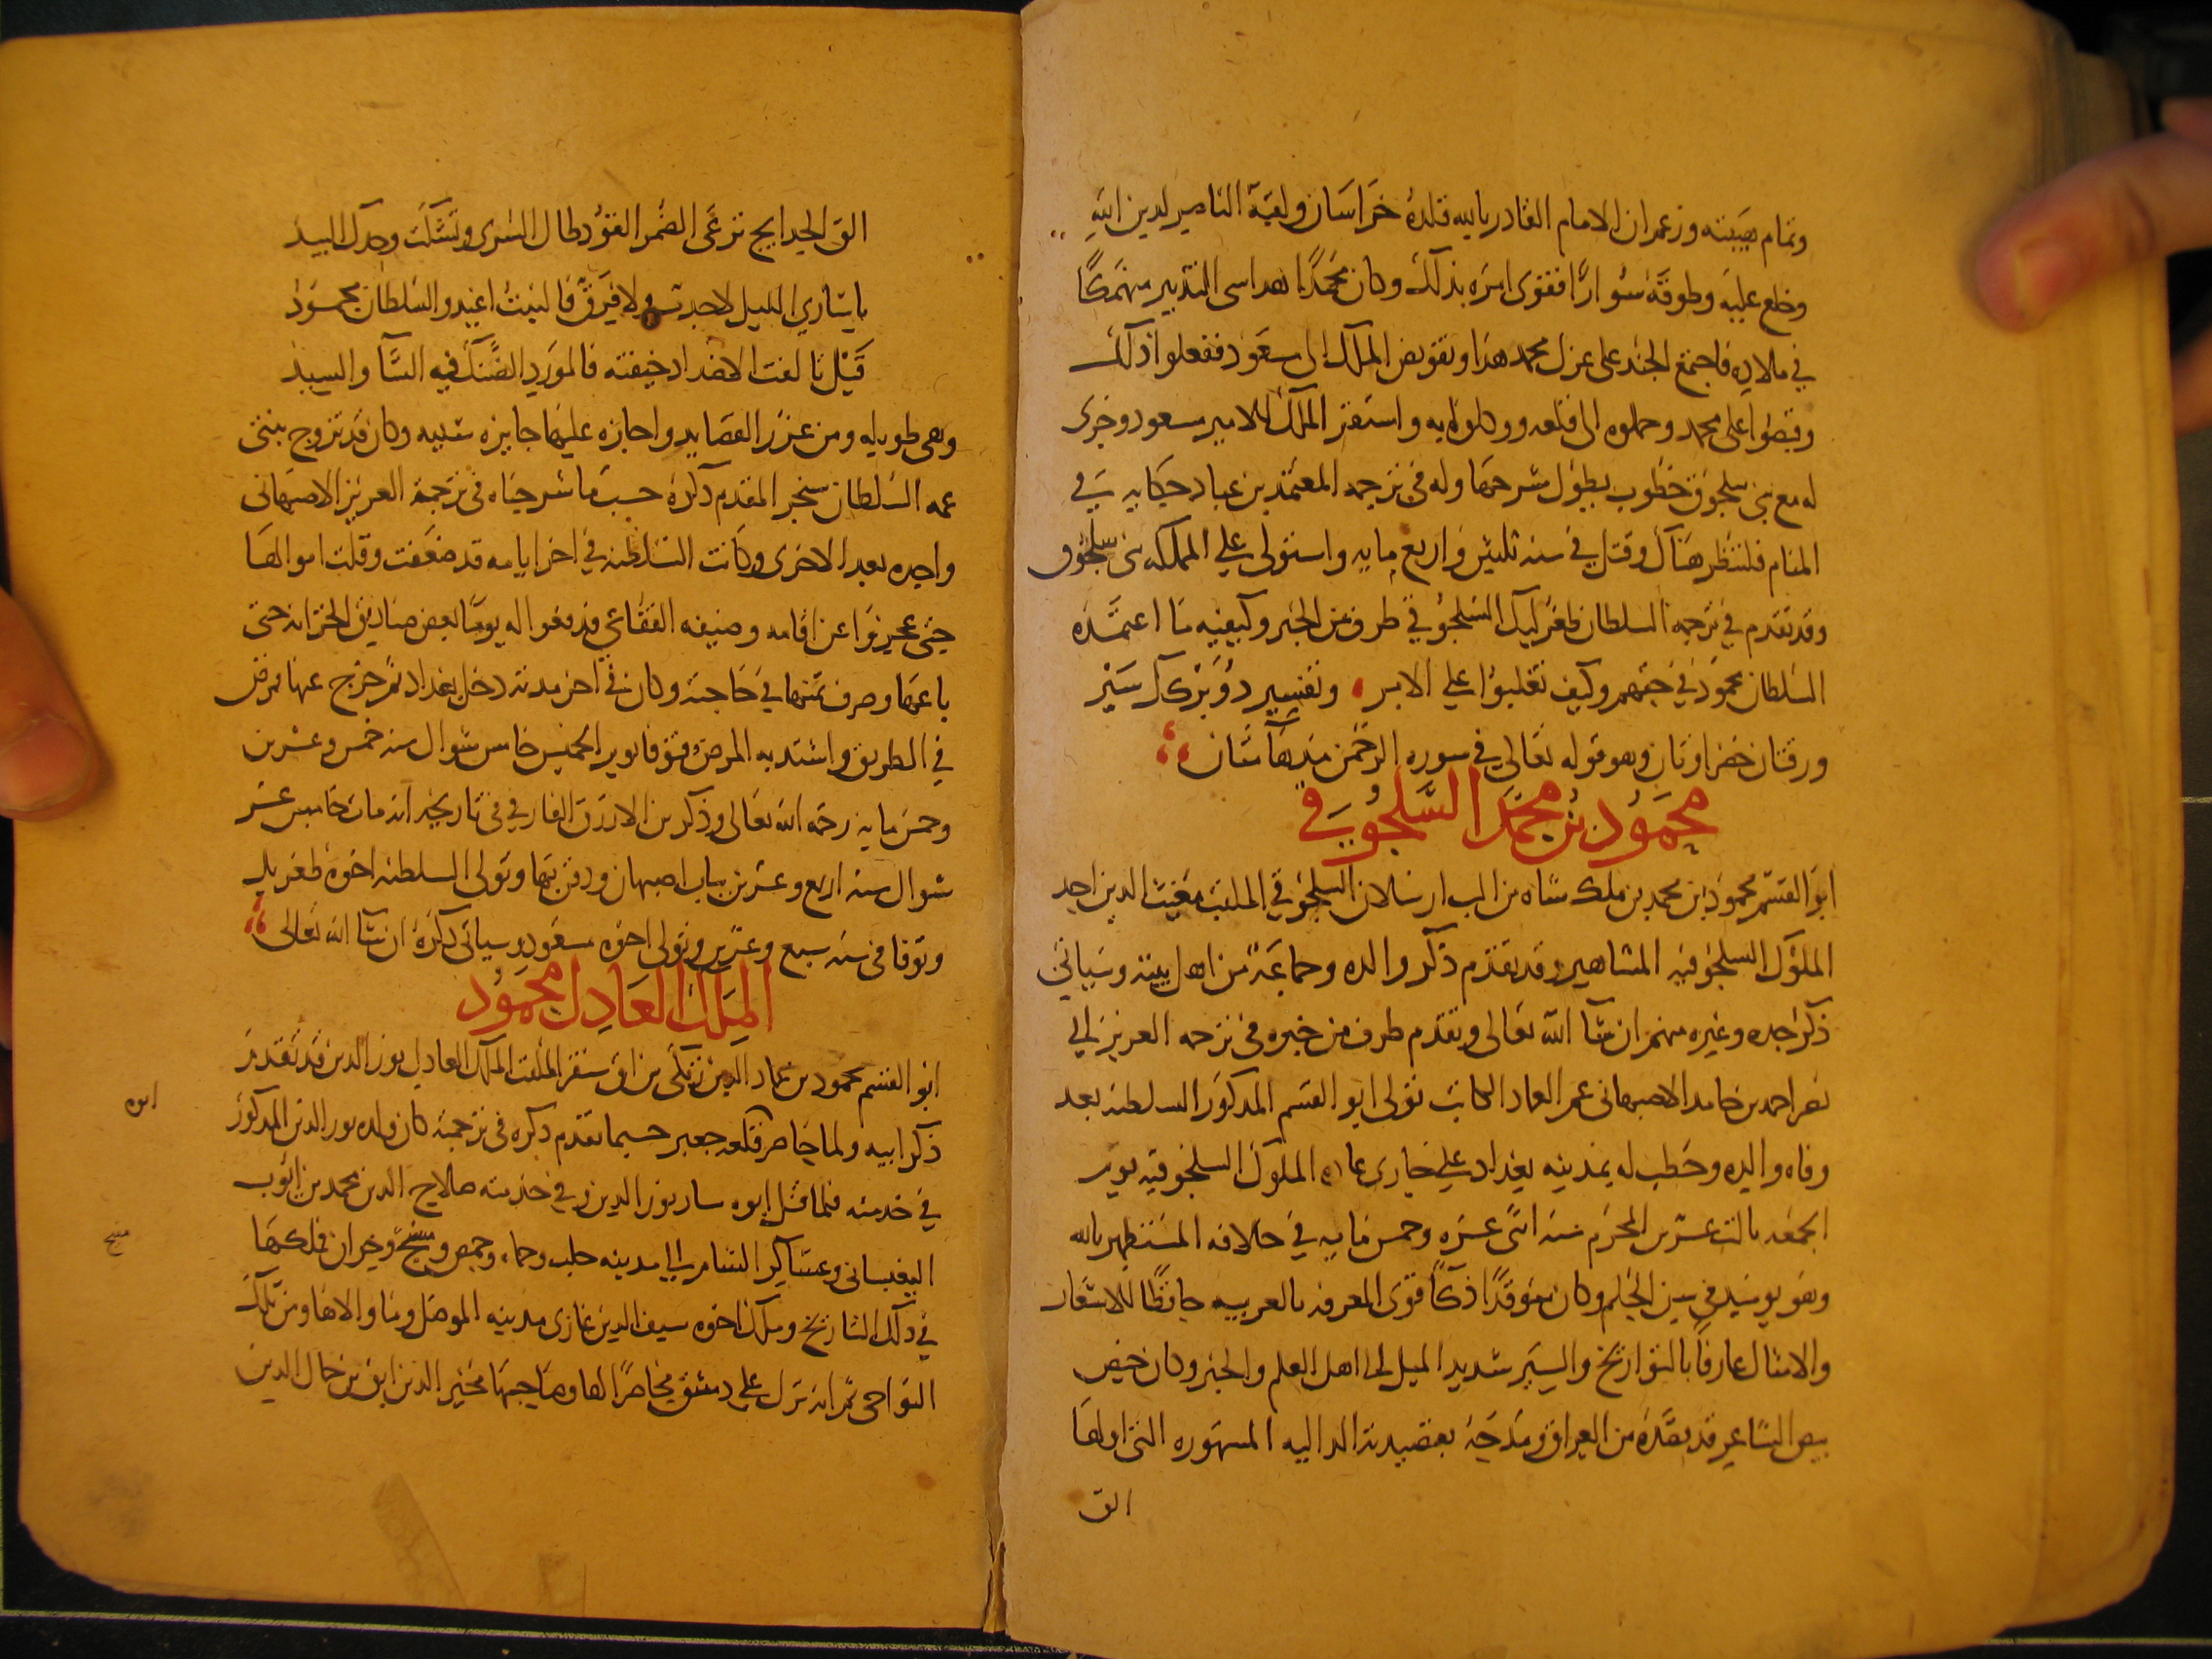 وتمام هيبته وزعم ان الامام القادر بالله قلده خراسان ولقبه الناصر لدين الله
وخلع عليه وطوقه سوارًا فقوى امره بذلك وكان محمدًا هذا سي التدبير منهمكًا
في ملاذه فاجتمع الجند على عزل محمد هذا وتفويض الملك الى مسعود ففعلوا ذلك
وقبضوا على محمد وحملوه الى قلعه ووكلوا به واستقر الملك للامير مسعود وجرى
له مع بني سلجوق خطوب يطول شرحها وله في ترجمه المعتمد بن عباد حكايه في
المنام فلتنظر هناك وقتل في سنه ثلثين واربع مايه واستولى على المملكه بني سلجوق
وقد تقدم في ترجمه السلطان طغرلبك السلجوقي طرف من الخبر وكيفيه ما اعتمده
السلطان محمود في حقهم وكيف تغلبوا على الامر وتفسير دو برك سبز
ورقتان خضراوتان وهو قوله تعالى في سوره الرحمن مدهامتان
محمود بن محمد السلجوقي
ابو القسم محمود بن محمد بن ملك شاه بن الب ارسلان السلجوقي الملقب مغيث الدين احد
الملوك السلجوقيه المشاهير وقد تقدم ذكر والده وجماعة من اهل بيته وسياتي
ذكر جده وغيره منهم ان شآ الله تعالى وتقدم طرف من خبره في ترجمه العزيز ابي
نصر احمد بن حامد الاصبهاني عم العماد الكاتب تولى ابو القسم المذكور السلطنه بعد
وفاه والده وخطب له بمدينه بغداد على جاري عاده الملوك السلجوقيه يوم
الجمعه ثالث عشرين المحرم سنه اثنى عشره وخمس مايه في خلافه المستظهر بالله
وهو يوميذ في سن الحلم وكان متوقدًا ذكآً قوى المعرفه بالعربيه حافظًا للاشعار
والامثال عارفًا بالتواريخ والسير شديد الميل الى اهل العلم والخير وكان حيص
بيص الشاعر قد قصده من العراق ومدحه بقصيدته الداليه المشهوره التي اولها
الق
الق الحدايج ترعى الضمر القود طال السرى وتشكت وخدك البيد
يا ساري الليل لا جدب ولا فرق فالنبت اغيد والسلطان محمود
قيل تالفت الاضداد خيفته فالمورد الضنك فيه الشآ والسيد
وهي طويله ومن غرر القصايد واجازه عليها جايزه سنيه وكان قد تزوج بنتى
عمه السلطان سنجر المقدم ذكره حسب ما شرحناه في ترجمة العزيز الاصبهاني
واحده بعد الاخرى وكانت السلطنه في اخر ايامه قد ضعفت وقلت اموالها
حتى عجزوا عن اقامه وضيفه الفقاعي فدفعوا له يومًا بعض صناديق الخزانه حتى
باعها وصرف ثمنها في حاجته وكان في اخر مدته دخل بغداد ثم خرج عنها فمرض
في الطريق واشتد به المرض وتوفا يوم الخميس خامس شوال سنه خمس وعشرين
وخمس مايه رحمه الله تعالى وذكر بن الازرق الفارقي في تاريخه انه مات خامس عشر
شوال سنه اربع وعشرين بباب اصبهان ودفن بها وتولى السلطنه اخوه طغريل
وتوفا في سنه سبع وعشرين وتولى اخوه مسعود وسياتي ذكره ان شآ الله تعالى
الملك العادل محمود
ابو القسم محمود بن عماد الدين زنكي بن اق سنقر الملقب الملك العادل نور الدين قد تقدم
ذكر ابيه ولما حاصر قلعه جعبر حسبما تقدم ذكره في ترجمته كان ولده نور الدين المذكور
في خدمته فلما قتل ابوه سار نور الدين في خدمته صلاح الدين محمد بن ايوب
اليغيساني وعساكر الشام الى مدينه حلب وحماه وحمص ومنبج وحران فملكها
في ذلك التاريخ وملك اخوه سيف الدين غازي مدينه الموصل وما والاها ومن تلك
النواحي ثم انه نزل على دمشق محاصرًا لها وصاحبها مجير الدين ابق بن جمال الدين
ابوه
منبج